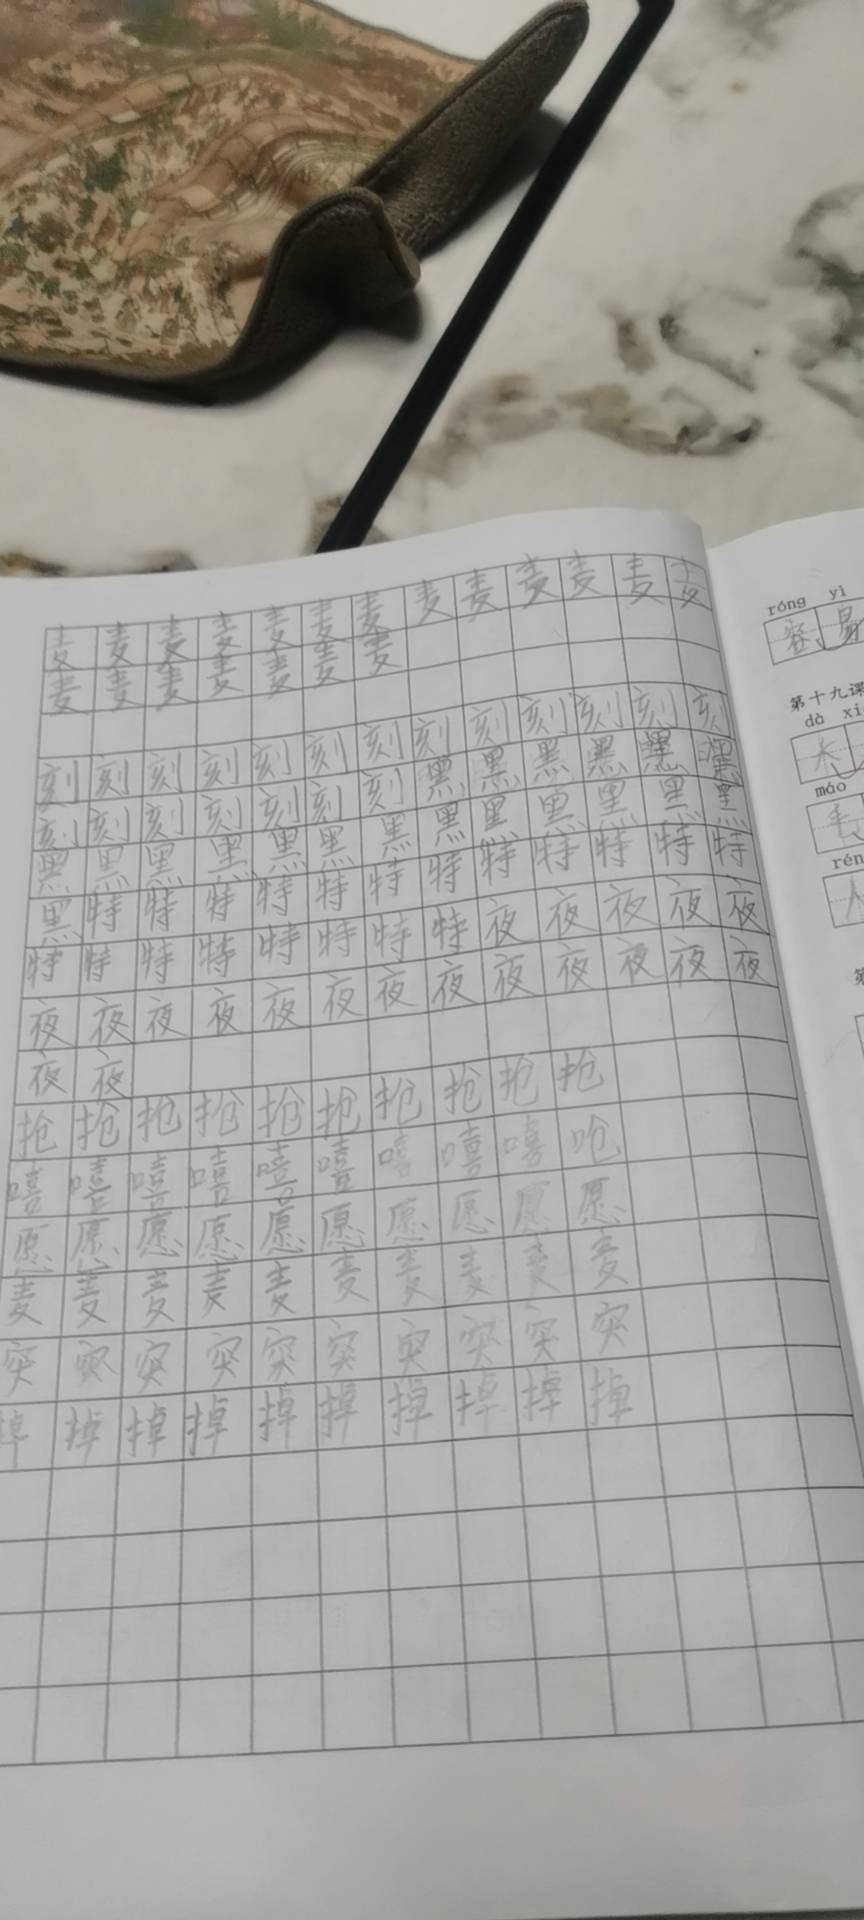 麦麦麦麦麦麦麦麦麦麦麦麦麦
麦麦麦麦麦麦麦
刻刻刻刻刻刻刻刻刻刻刻刻刻
刻刻刻刻刻刻刻黑黑黑黑黑黑
黑黑黑黑黑黑黑黑黑黑黑黑黑
黑特特特特特特特特特特特特
特特特特特特特特夜夜夜夜夜
夜夜夜夜夜夜夜夜夜夜夜夜夜
夜夜
抢抢抢抢抢抢抢抢抢抢
嘻嘻嘻嘻嘻嘻嘻嘻嘻呛
愿愿愿愿愿愿愿愿愿愿
麦麦麦麦麦麦麦麦麦麦
突突突突突突突突突突
掉掉掉掉掉掉掉掉掉掉
róng yì
容易
第十九课
dà xi
大
máo
毛
rén
人
第